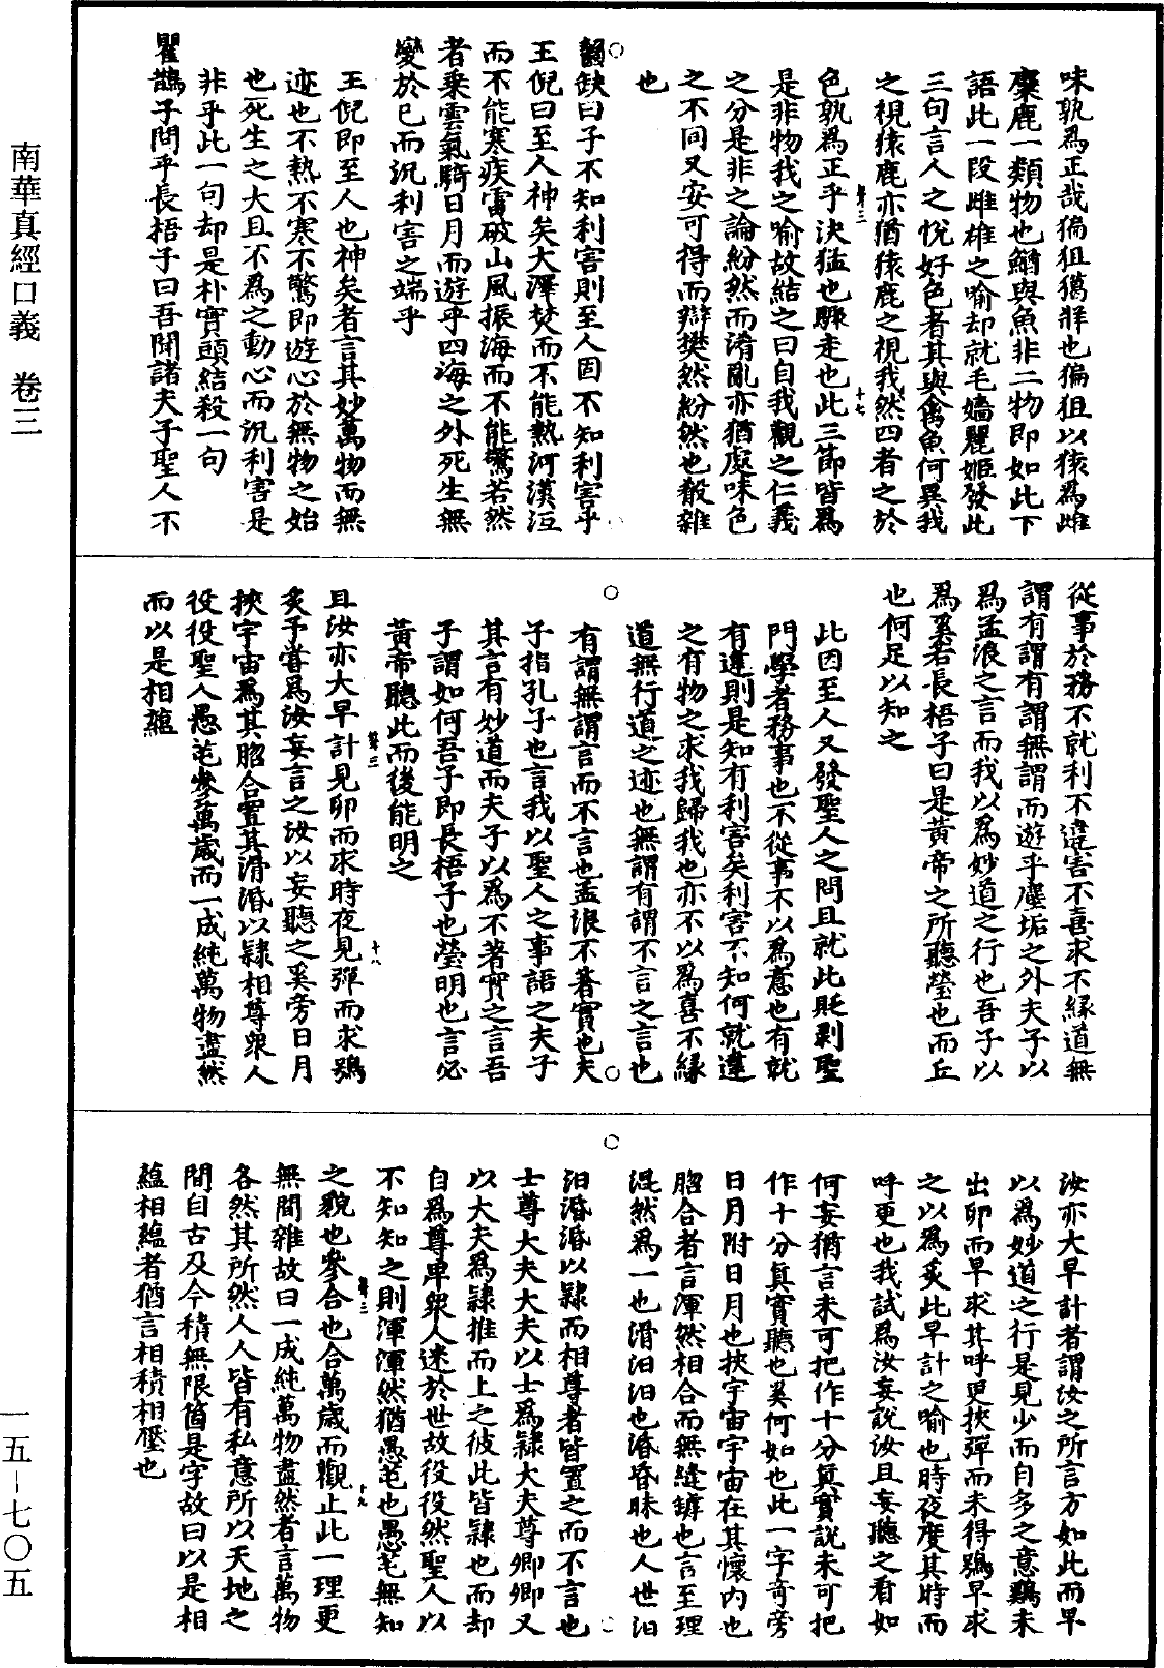 味孰為正哉猵狙獦牂也猵狙以猿為雌
麋鹿一類物也鰌與魚非二物即如此下
語此一段雌雄之喻却就毛嬙麗姬發此
三句言人之悅好色者其與禽魚何異我
之視猿鹿亦猶猿鹿之視我然四者之於
色孰為正乎決猛也驟走也此三節皆為
是非物我之喻故結之曰自我觀之仁義
之分是非之論紛然而淆亂亦猶處味色
之不同又安可得而辯樊然紛然也殽雜
也
齧缺曰子不知利害則至人固不知利害乎
王倪曰至人神矣大澤焚而不能熱河漢沍
而不能寒疾雷破山風振海而不能驚若然
者乘雲氣騎日月而遊乎四海之外死生無
變於已而況利害之端乎
王倪即至人也神矣者言其妙萬物而無
迹也不熱不寒不驚即遊心於無物之始
也死生之大且不為之動心而況利害是
非乎此一句却是朴實頭結殺一句
瞿鵲子問乎長梧子曰吾聞諸夫子聖人不
從事於務不就利不違害不喜求不緣道無
謂有謂有謂無謂而遊乎塵垢之外夫子以
為孟浪之言而我以為妙道之行也吾子以
為奚若長梧子曰是黃帝之所聽瑩也而丘
也何足以知之
此因至人又發聖人之問且就此貶剥聖
門學者務事也不從事不以為意也有就
有違則是知有利害矣利害不知何就違
之有物之求我歸我也亦不以為喜不緣
道無行道之迹也無謂有謂不言之言也
有謂無謂言而不言也孟浪不著實也夫
子指孔子也言我以聖人之事語之夫子
其言有妙道而夫子以為不著實之言吾
子謂如何吾子即長梧子也瑩明也言必
黃帝聽此而後能明之
且汝亦大早計見卵而求時夜見彈而求鴞
炙予嘗為汝妄言之汝以妄聽之奚旁日月
挾宇宙為其脗合置其滑涽以隸相尊眾人
役役聖人愚芚參萬歲而一成純萬物盡然
而以是相蘊
汝亦大早計者謂汝之所言方如此而早
以為妙道之行是見少而自多之意鷄未
出卵而早求其呼更挾彈而未得鴞早求
之以為炙此早計之喻也時夜度其時而
呼更也我試為汝妄說汝且妄聽之看如
何妄猶言未可把作十分真實說未可把
作十分真實聽也奚何如也此一字奇旁
日月附日月也挾宇宙宇宙在其懷內也
脗合者言渾然相合而無縫罅也言至理
混然為一也滑汩汩也涽昏昧也人世汩
汩涽涽以隸而相尊者皆置之而不言也
士尊大夫大夫以士為隸大夫尊卿卿又
以大夫為隸推而上之彼此皆隸也而却
自為尊卑眾人迷於世故役役然聖人以
不知知之則渾渾然猶愚芚也愚芚無知
之貌也參合也合萬歲而觀止此一理更
無間雜故曰一成純萬物盡然者言萬物
各然其所然人人皆有私意所以天地之
間自古及今積無限箇是字故曰以是相
蘊相蘊者猶言相積相壓也
南華真經口義 卷三
一五–七〇五